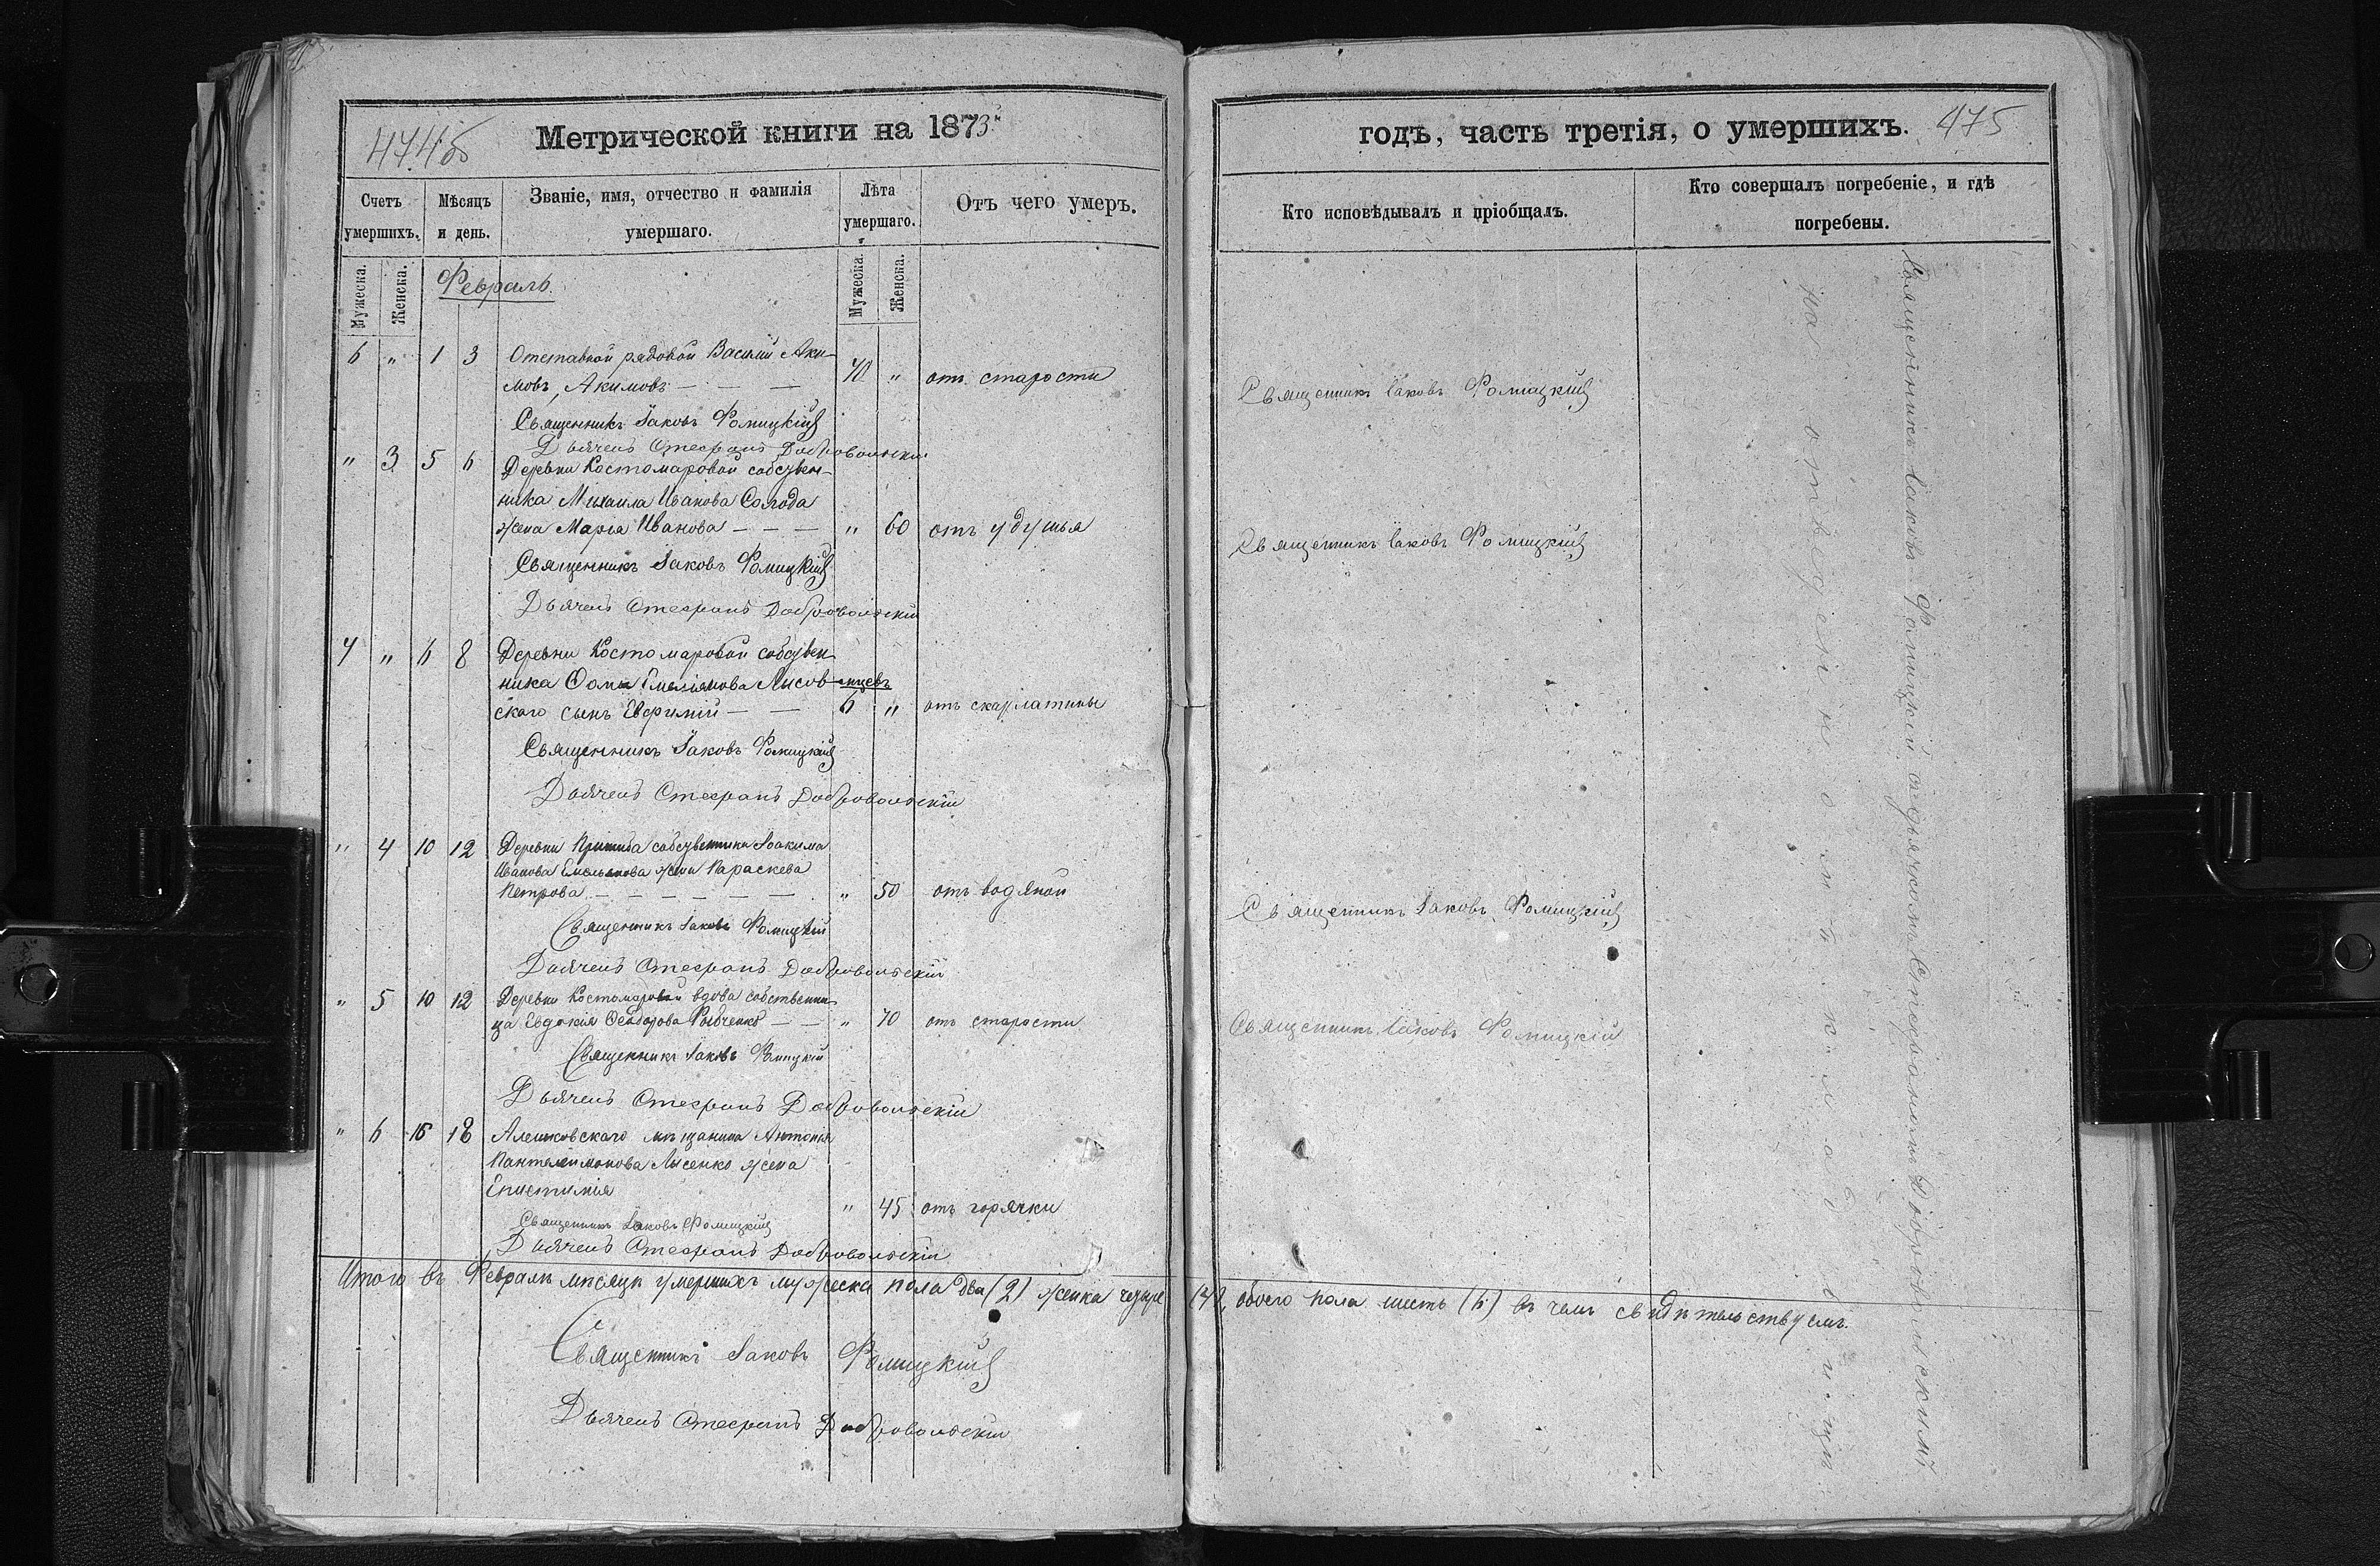 474об
Метрической книги на 1873
Счетъ умершихъ.
Мѣсяцъ и день.
Званіе, имя, отчество и фамилія умершаго.
Лѣта умершаго.
Отъ чего умеръ.
Мужеска.
Женска.
Февраль.
Мужеска.
Женска.
6 " 1 3 Отставной рядовой Василій Аки-
мовъ, Акимовъ — — — 70 " отъ старости
Священникъ Іаковъ Фомицкій
Дьячекъ Стефанъ Добровольскій
" 3 5 6 Деревни Костомаровой собствен-
ника Михаила Иванова Солода
жена Марія Иванова — — — " 60 отъ удушья
Священникъ Іаковъ Фомицкій
Дьячекъ Стефанъ Добровольскій
7 " 6 8 Деревни Костомаровой собствен-
ника Фомы Емеліянова Лисов- мцевъ
скаго сынъ Евфимій — — 6 " отъ скарлатины
Священникъ Іаковъ Фомицкій
Дьячекъ Стефанъ Добровольскій
" 4 10 12 Деревни собственника Іоакима
Иванова Емельянова жена Параскева
Петрова — — — — — — " 50 отъ водяной
Священникъ Іаковъ Фомицкій
Дьячекъ Стефанъ Добровольскій
" 5 10 12 Деревни Костомаровой вдова собственни-
ца Евдокія Феодорова — — " 70 отъ старости
Священникъ Іаковъ Фомицкій
Дьячекъ Стефанъ Добровольскій
" 6 16 18 Алешковскаго мѣщанина Антонія
Пантелеимонова Лысенко жена
Епистимія " 45 отъ горячки
Священникъ Іаковъ Фомицкій
Дьячекъ Стефанъ Добровольскій
Итого въ Февралѣ мѣсяцѣ умершихъ мужеска пола два (2) женска четыре (4), обоего пола шесть (6) въ чемъ свидѣтельствуемъ.
Священникъ Іаковъ Фомицкій
Дьячекъ Стефанъ Добровольскій
годъ, часть третія, о умершихъ.
475
Кто исповѣдывалъ и пріобщалъ.
Кто совершалъ погребеніе, и гдѣ погребены.
Священникъ Іаковъ Фомицкій
Священникъ Іаковъ Фомицкій
Священникъ Іаковъ Фомицкій
Священникъ Іаковъ Фомицкій
Священникъ Іаковъ Фомицкій съ дьячкомъ Стефаномъ Добровольскимъ
на отведенномъ кладбищѣ